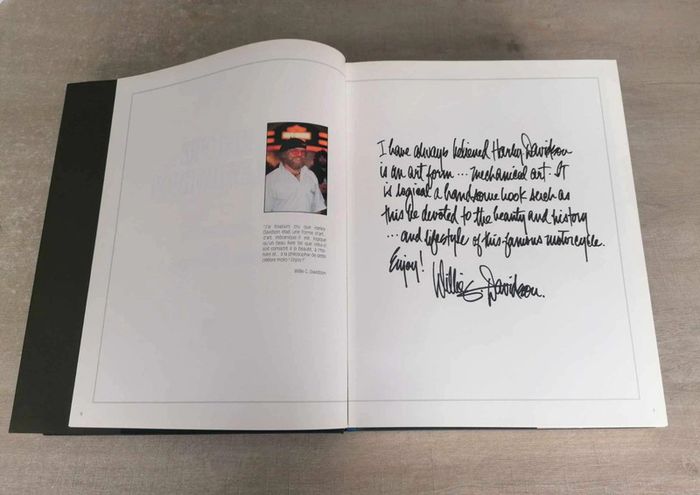 "J'ai toujours cru que Harley
Davidson était une forme d'art...
d'art mécanique. Il est logique
qu'un beau livre tel que celui-ci
soit consacré à la beauté, à l'his-
toire et... à la philosophie de cette
célèbre moto ! Enjoy !"
Willie G. Davidson
I have always believed Harley Davidson
is an art form ... mechanical art. It
is logical a handsome book such as
this be devoted to the beauty and history
... and lifestyle of this famous motorcycle.
Enjoy!
Willie G. Davidson.